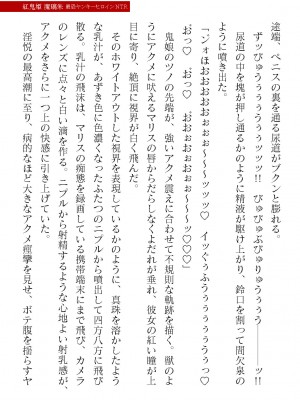 途端、ペニスの裏を通る尿道がプクンと膨れる。
ずッびゅぅぅぅぅッッッ!! びゅびゅぶびゅりゅぅぅぅう――ッ!!
尿道の中を塊が押し通るかのように精液が駆け上がり、鈴口を割って間欠泉の
ように噴き出た。
「ジォほおおおおおぉぉ～～～ッッッ♡ イッぐぅふぅうぅぅぅぅうっ♡
おっ♡ おっ♡ おおおおおぉぉ～～～ッッ♡♡♡」
鬼娘のツノの先端が、強いアクメ震えに合わせて不規則な軌跡を描く。獣のよ
うにアクメに吠えるマリスの唇からだらしなくよだれが垂れ、彼女の紅い瞳が上
目に寄り、絶頂に視界が白く飛んだ。
そのホワイトアウトした視界を表現しているかのように、真珠を溶かしたよう
な乳汁が、あずき色に色濃くなったふたつのニプルから噴出して四方八方に飛び
散る。乳汁の飛沫は、マリスの痴態を録画している携帯端末にまで飛び、カメラ
のレンズに点々と白い滴を作る。ニプルから射精するような心地よい射乳感が、
アクメをさらにもう一つ上の快感に引き上げていた。
淫悦の最高潮に至り、病的なほど大きなアクメ痙攣を見せ、ボテ腹を揺らすヤ